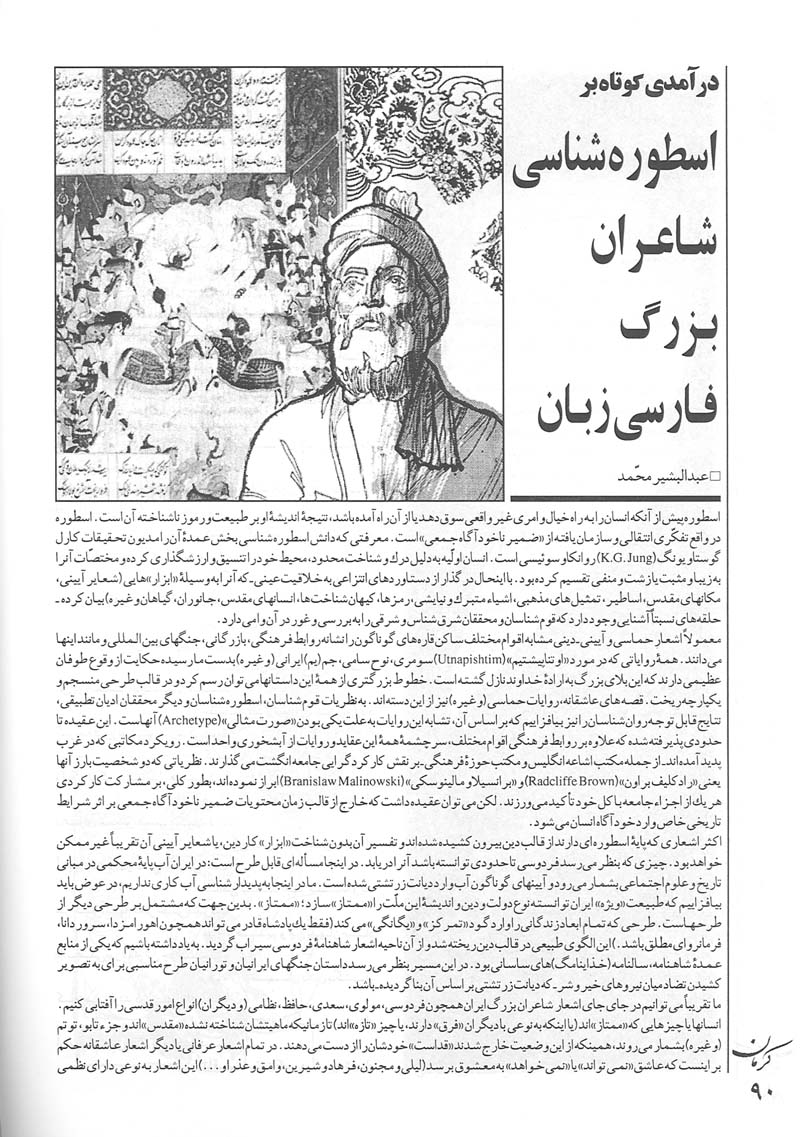 در آمدی کوتاه بر
اسطوره‌شناسی
شاعران
بزرگ
فارسی زبان
□ عبدالبشیر محمّد
اسطوره پیش از آنکه انسان را به راه خیال و امری غیر واقعی سوق دهد یا از آن راه آمده باشد، نتیجهٔ اندیشهٔ او بر طبیعت و رموز ناشناخته آن است. اسطوره
در واقع تفکّری انتقالی و سازمان یافته از «ضمیر ناخودآگاه جمعی» است. معرفتی که دانش اسطوره شناسی بخش عمدهٔ آن را مدیون تحقیقات کارل
گوستاو یونگ (K.G. Jung) روانکاو سوئیسی است. انسان اولیّه به دلیل درک و شناخت محدود، محیط خود را تنسیق و ارزشگذاری کرده و مختصّات آنرا
به زیبا و مثبت یا زشت و منفی تقسیم کرده بود. با اینحال در گذار از دستاوردهای انتزاعی به خلاقیت عینی ـ که آنرا به وسیلهٔ «ابزار»هایی (شعایر آیینی،
مکانهای مقدس، اساطیر، تمثیل‌های مذهبی، اشیاء متبرک و نیایشی، رمزها، کیهان شناخت‌ها، انسانهای مقدس، جانوران، گیاهان و غیره) بیان کرده ـ
حلقه‌های نسبتاً آشنایی وجود دارد که قوم شناسان و محققان شرق شناس و شرقی را به بررسی و غور در آن وامی دارد.
معمولاً اشعار حماسی و آیینی ـ دینی مشابه اقوام مختلف ساکن قاره‌های گوناگون را نشانه روابط فرهنگی، بازرگانی، جنگهای بین المللی و مانند اینها
می‌دانند. همهٔ روایاتی که در مورد «اوتناپیشتیم» (Utnapishtim) سومری، نوح سامی، جم (یم) ایرانی (و غیره) بدست ما رسیده حکایت از وقوع طوفان
عظیمی دارند که این بلای بزرگ به ارادهٔ خداوند نازل گشته است. خطوط بزرگتری از همهٔ این داستانها می‌توان رسم کرد و در قالب طرحی منسجم و
یکپارچه ریخت. قصه‌های عاشقانه، روایات حماسی (و غیره) نیز از این دسته‌اند. به نظریات قوم شناسان، اسطوره شناسان و دیگر محققان ادیان تطبیقی،
نتایج قابل توجه روان شناسان را نیز بیافزاییم که بر اساس آن، تشابه این روایات به علت یکی بودن «صورت مثالی» (Archetype) آنهاست. این عقیده تا
حدودی پذیرفته شده که علاوه بر روابط فرهنگی اقوام مختلف، سرچشمهٔ همهٔ این عقاید و روایات از آبشخوری واحد است. رویکرد مکاتبی که در غرب
پدید آمده‌اند ـ از جمله مکتب اشاعه انگلیس و مکتب حوزهٔ فرهنگی ـ بر نقش کارکردگرایی جامعه انگشت می‌گذارند. نظریاتی که دو شخصیت بارز آنها
یعنی «رادکلیف براون» (Radcliffe Brown) و «برانسیلاو مالینوسکی» (Branislaw Malinowski) ابراز نموده‌اند، بطور کلی، بر مشارکت کارکردی
هر یک از اجزاء جامعه با کل خود تأکید می‌ورزند. لکن می‌توان عقیده داشت که خارج از قالب زمان محتویات ضمیر ناخودآگاه جمعی بر اثر شرایط
تاریخی خاص وارد خودآگاه انسان می‌شود.
اکثر اشعاری که پایهٔ اسطوره‌ای دارند از قالب دین بیرون کشیده شده‌اند و تفسیر آن بدون شناخت «ابزار» کار دین، یا شعایر آیینی آن تقریباً غیر ممکن
خواهد بود. چیزی که بنظر می‌رسد فردوسی تا حدودی توانسته باشد آنرا دریابد. در اینجا مسأله‌ای قابل طرح است: در ایران آب پایهٔ محکمی در مبانی
تاریخ و علوم اجتماعی بشمار می‌رود و آیینهای گوناگون آب وارد دیانت زرتشتی شده است. ما در اینجا به پدیدار شناسی آب کاری نداریم، در عوض باید
بیافزاییم که طبیعت «ویژه» ایران توانسته نوع دولت و دین و اندیشهٔ این ملّت را «ممتاز» سازد؛ «ممتاز». بدین جهت که مشتمل بر طرحی دیگر از
طرحهاست. طرحی که تمام ابعاد زندگانی را وارد گود «تمرکز» و «یگانگی» می‌کند (فقط یک پادشاه قادر می‌تواند همچون اهورامزدا، سرور دانا،
فرمانروای مطلق باشد.) این الگوی طبیعی در قالب دین ریخته شد و از آن ناحیه اشعار شاهنامهٔ فردوسی سیراب گردید. به یاد داشته باشیم که یکی از منابع
عمدهٔ شاهنامه، سالنامه (خداینامگ)های ساسانی بود. در این مسیر بنظر می‌رسد داستان جنگهای ایرانیان و تورانیان طرح مناسبی برای به تصویر
کشیدن تضاد میان نیروهای خیر و شر ـ که دیانت زرتشتی بر اساس آن بنا گردیده ـ باشد.
ما تقریباً می‌توانیم در جای جای اشعار شاعران بزرگ ایران همچون فردوسی، مولوی، سعدی، حافظ، نظامی (و دیگران) انواع امور قدسی را آفتابی کنیم.
انسانها یا چیزهایی که «ممتاز»اند (یا اینکه به نوعی با دیگران «فرق» دارند، یا چیز «تازه»اند) تا زمانیکه ماهیتشان شناخته نشده «مقدس»اند و جزء تابو، توتم
(و غیره) بشمار می‌روند، همینکه از این وضعیت خارج شدند «قداست» خودشان را از دست می‌دهند. در تمام اشعار عرفانی یا دیگر اشعار عاشقانه حکم
بر اینست که عاشق «نمی تواند» یا «نمی خواهد» به معشوق برسد (لیلی و مجنون، فرهاد و شیرین، وامق و عذرا و ...) این اشعار به نوعی دارای نظمی
کرمان
۹۰